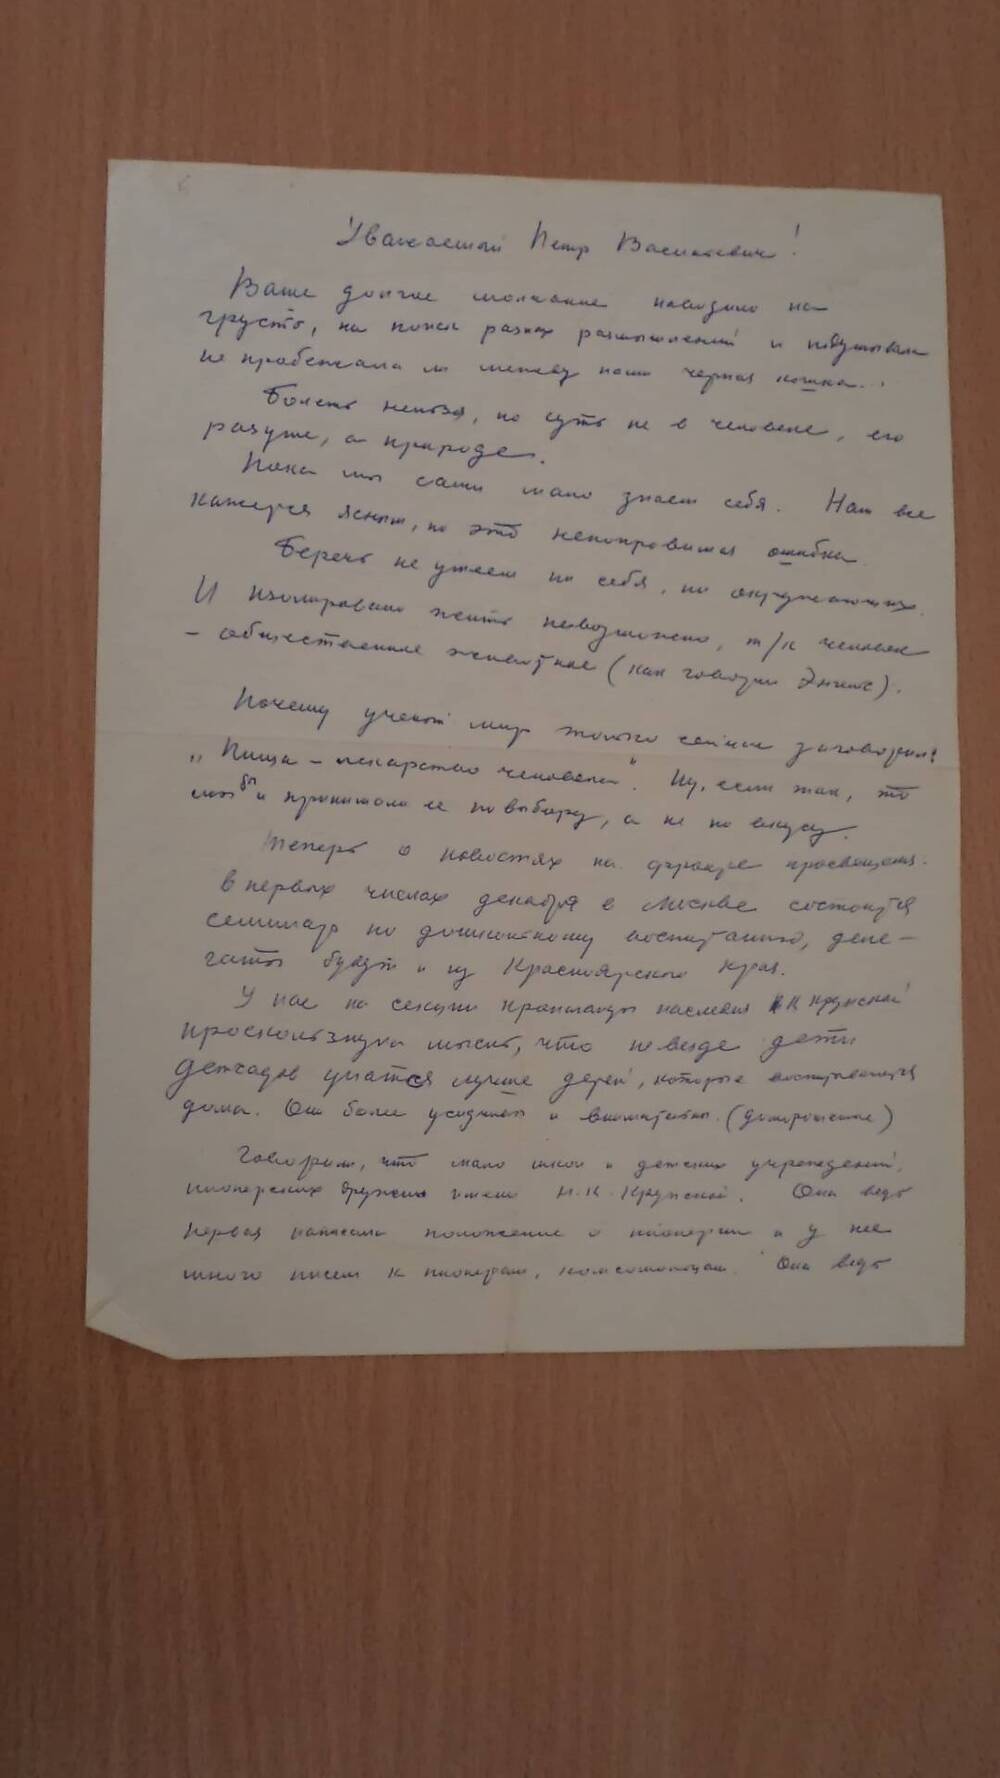 Уважаемый Петр Васильевич!
Ваше долгое молчание наводило на
грусть, на поиск разных размышлений и подумывала
не пробежала ли между нами черная кошка.
Болеть нельзя, но суть не в человеке, его
разуме, а природе.
Пока мы сами мало знаем себя. Нам все
кажется ясным, но это непоправимая ошибка.
Беречь не умеем ни себя, ни окружающих.
И изолировано жить невозможно, т/к человек
- общественное животное (как говорил Энгельс).
Почему ученый мир только сейчас заговорил:
„Пища – лекарство человека". Ну, если так, то
мы бы и принимали ее по выбору, а не по вкусу.
Теперь о новостях на фронте просвещения.
В первых числах декабря в Москве состоится
семинар по дошкольному воспитанию, деле-
гаты будут и из Красноярского края.
У нас на секции пропаганды наследия НК Крупской
проскользнула мысль, что не везде дети
детсадов учатся лучше детей, которые воспитываются
дома. Они более усидчивы и внимательны. (доморощенные)
Говорили, что мало школ и детских учреждений,
пионерских дружин имени Н.К. Крупской. Она ведь
первая написала положение о пионерии и у нее
много писем к пионерам, комсомольцам. Она ведь